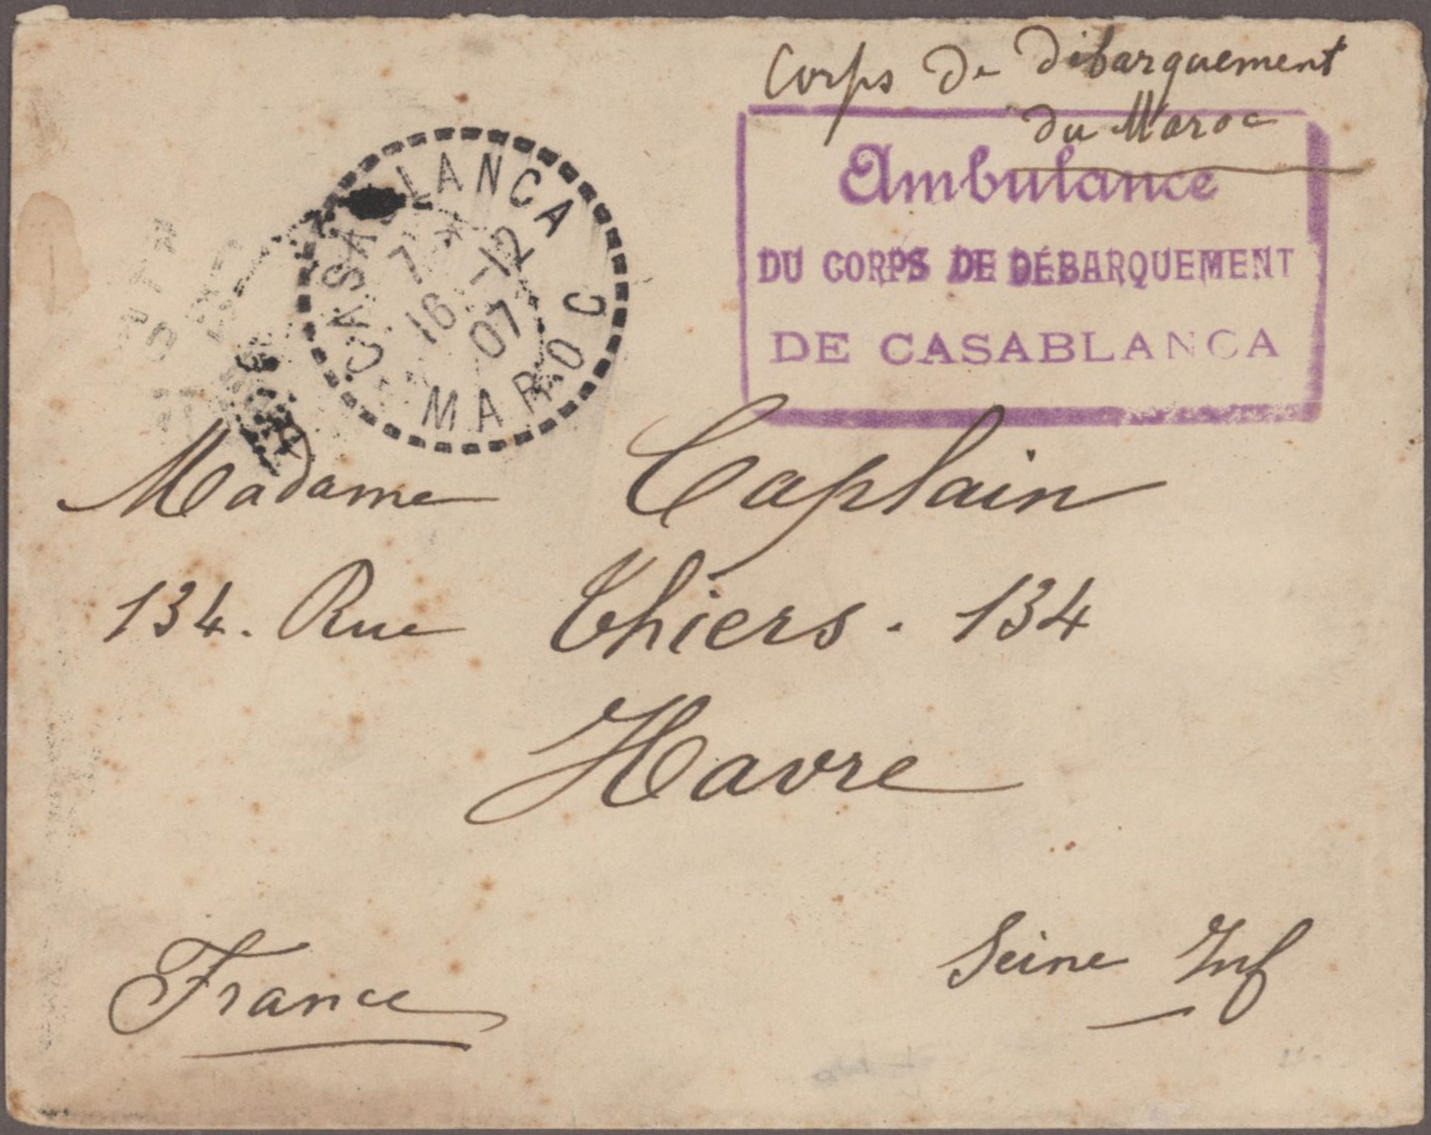 Corps de débarquement
du Maroc
Ambulance
DU CORPS DE DÉBARQUEMENT
DE CASABLANCA
CASABLANCA
7 * 12
16 - 07
MAROC
Madame Caplain
134. Rue Thiers. 134
Havre
Seine Inf
France